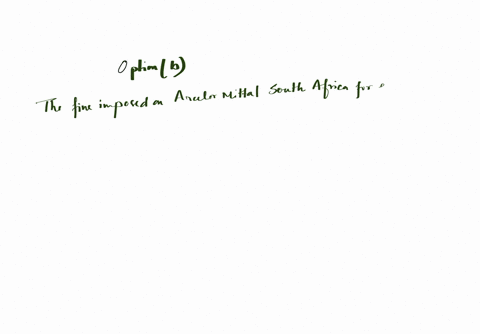 Option (b)
The fine imposed on Arcelor Mittal South Africa for